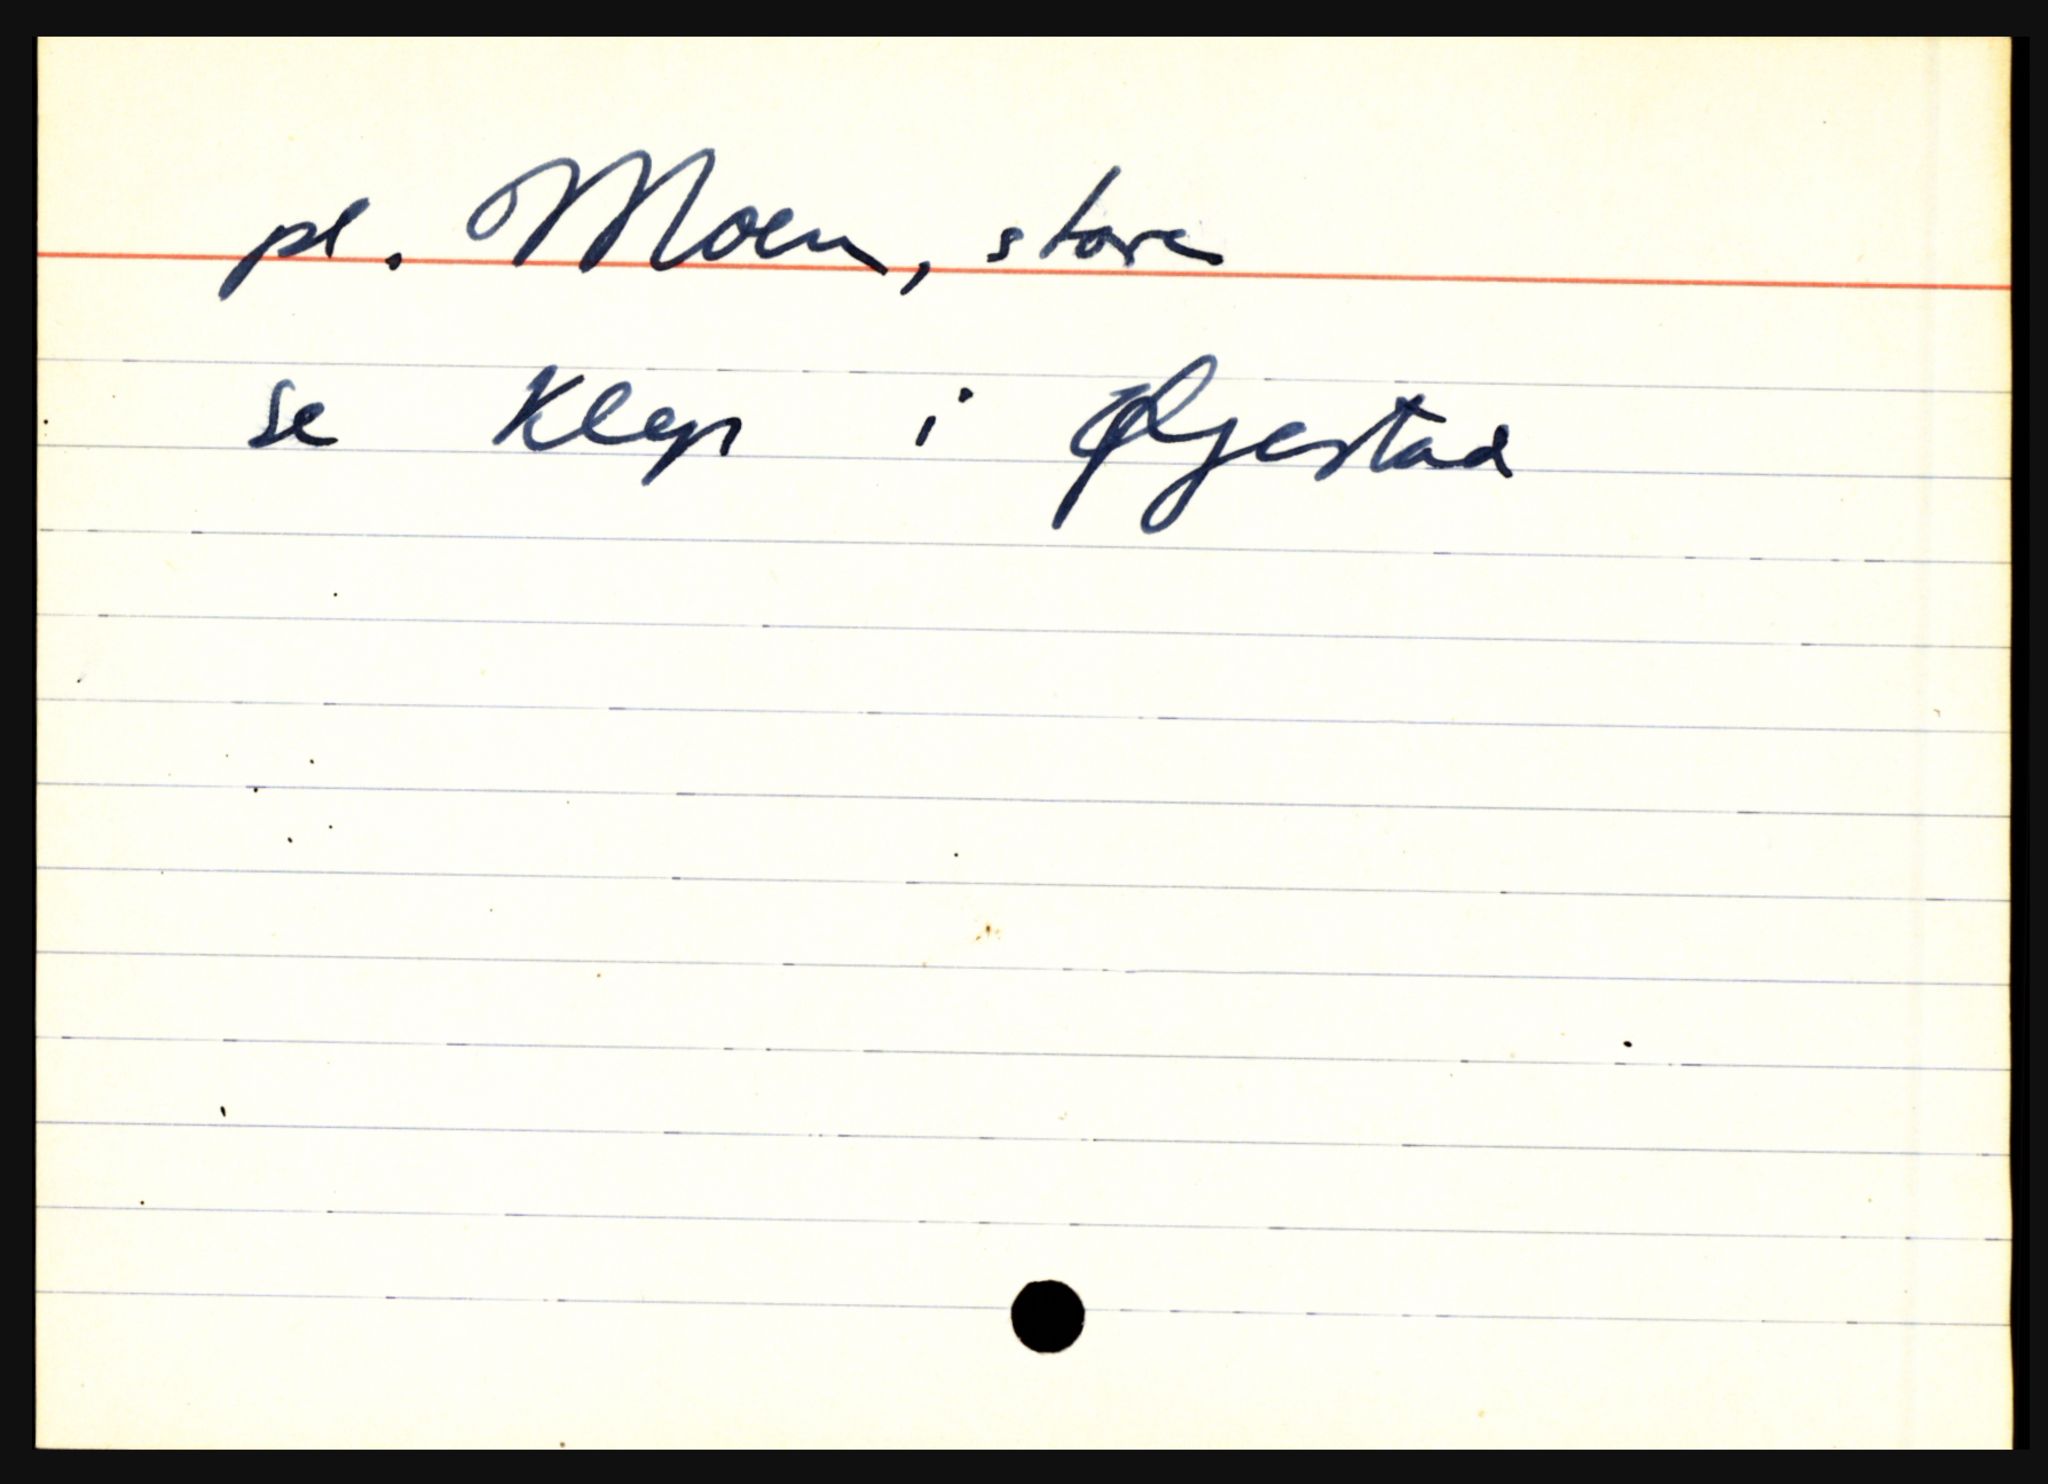 pl. Moen, store
se Klep i Øyestad